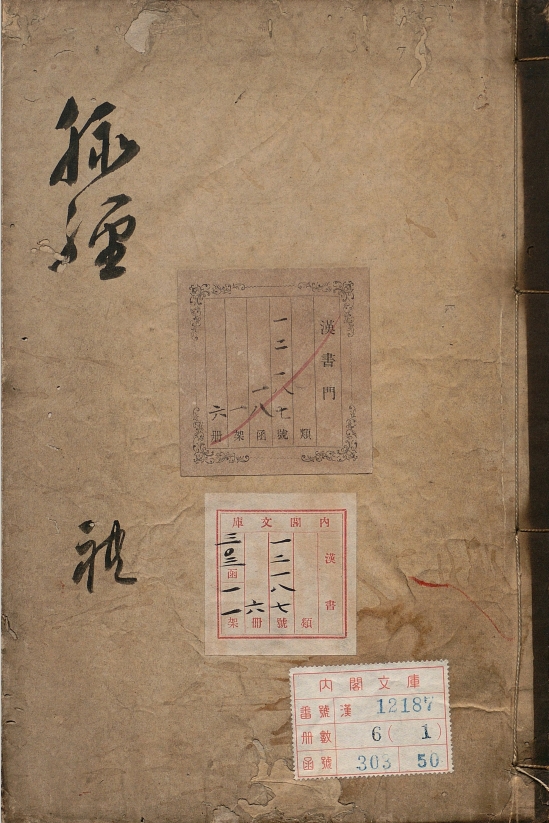 脉經
禮
漢書門
類
一二一八七號
一八函
一架
六冊
內閣文庫
漢書
類
一二一八七號
六冊
三〇三函
一一架
內閣文庫
番號 漢 12187
冊數 6(1)
函號 303 50